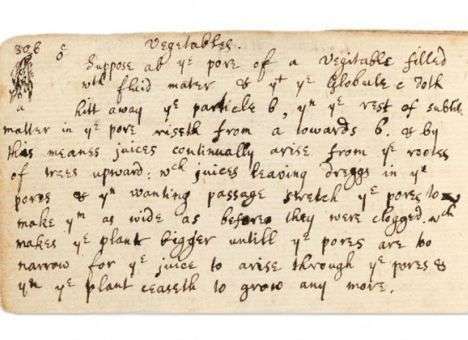 306 Vegetables.
c
b
Suppose ab yᵉ pore of a Vegitable filled
wᵗʰ fluid mater & yᵗ yᵉ Globule c doth
a hitt away yᵉ particle b, yⁿ yᵉ rest of subtile
matter in yᵉ pore riseth from a towards b. & by
this means juices continually arise from yᵉ rootes
of trees upward: wᶜʰ juices leaving dreggs in yᵉ
pores & yⁿ wanting passage stretch yᵉ pores to
make yᵐ as wide as before they were clogged. wᶜʰ
makes yᵉ plant bigger untill yᵉ pores are too
narrow for yᵉ juice to arise through yᵉ pores &
yⁿ yᵉ plant ceaseth to grow any more.